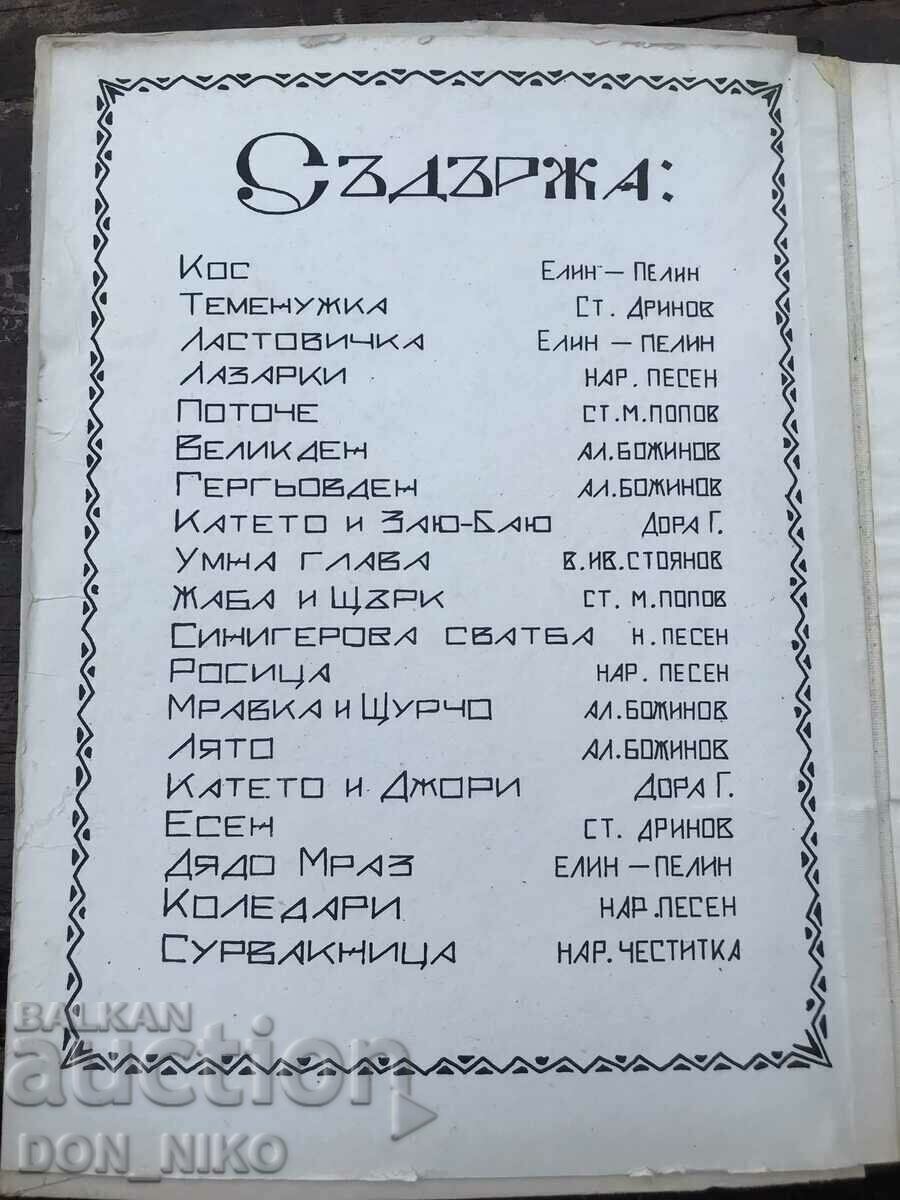 Съдържа:
Кос Елин - Пелин
Теменужка Ст. Дринов
Ластовичка Елин - Пелин
Лазарки нар. песен
Поточе ст. м. попов
Великден ал. божинов
Гергьовден ал. божинов
Катето и Заю-Баю Дора Г.
Умна глава в. ив. стоянов
Жаба и Щърк ст. м. попов
Синигерова сватба н. песен
Росица нар. песен
Мравка и Щурчо ал. божинов
Лято ал. божинов
Катето и Джори Дора Г.
Есен ст. дринов
Дядо Мраз елин - пелин
Коледари нар. песен
Сурвакница нар. честитка
BALKAN
auction
DON_NIKO